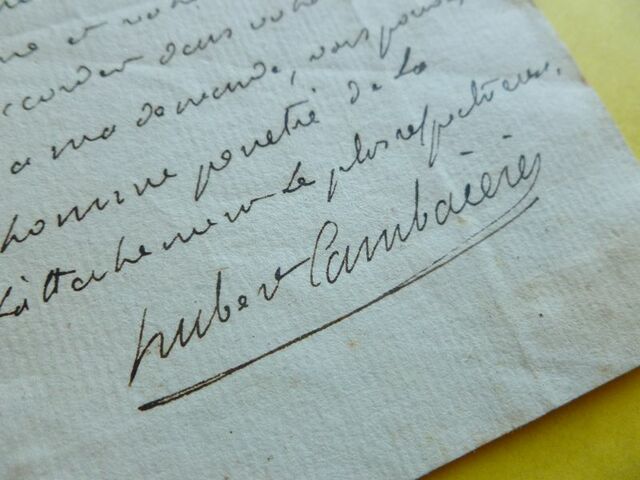 et
corder dans votre
a ma demande, vous
homme penetré de la
L'attachement le plus respectueux.
hubert Cambacérès